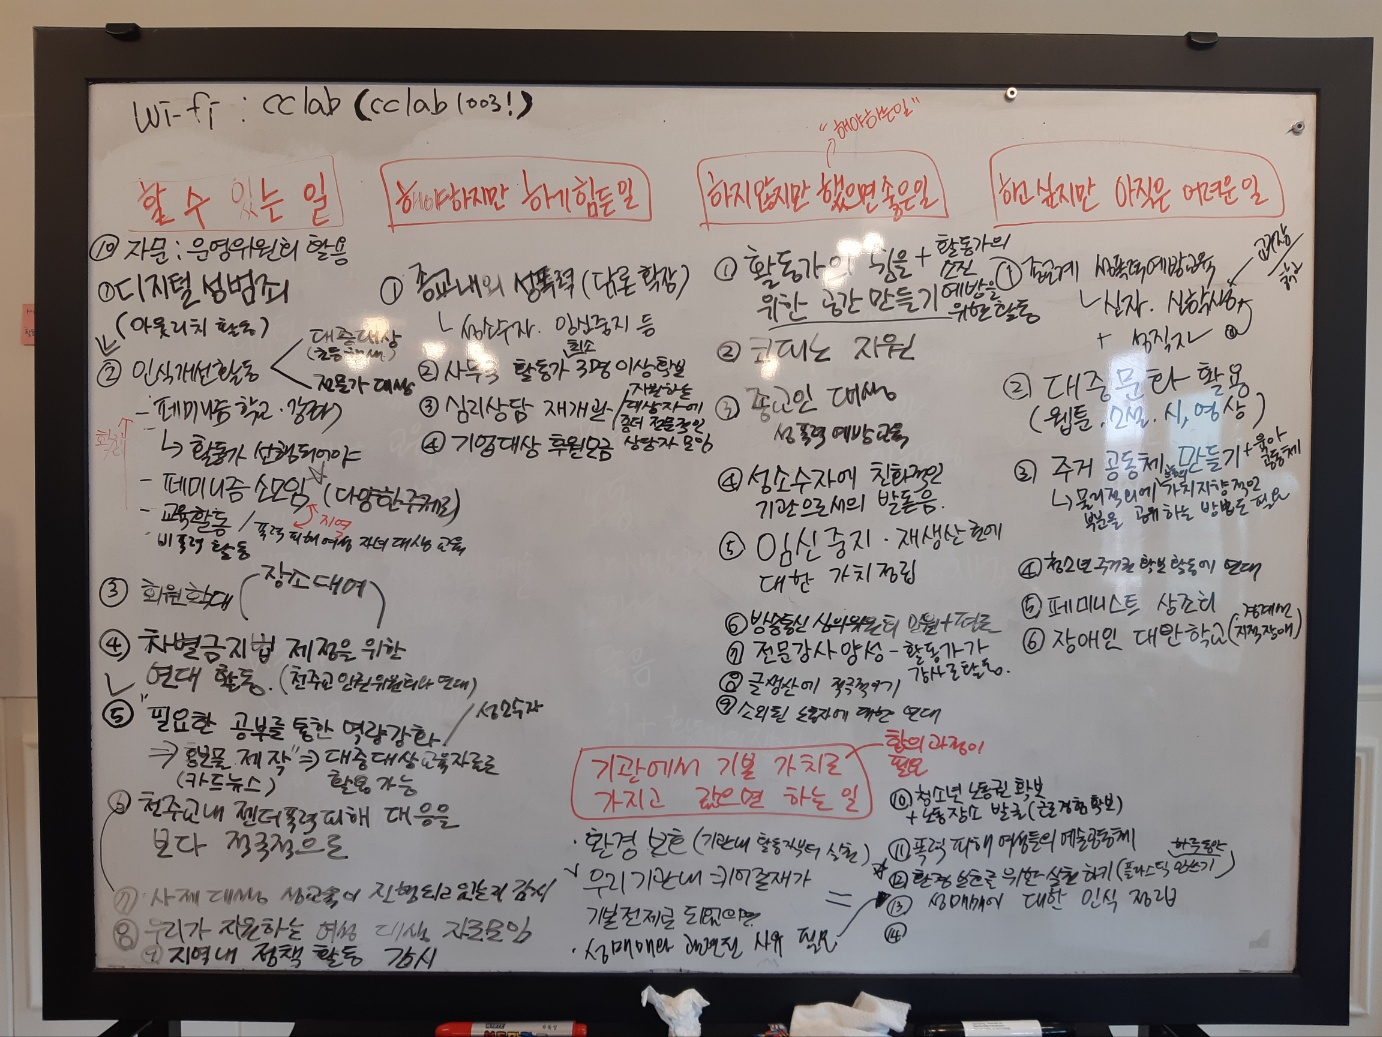 Wi-fi : cclab (cclab1003!)
할 수 있는 일
⑩ 자문 : 운영위원회 활용
① 디지털 성범죄
(아웃리치 활동)
② 인식개선활동
대중대상
전문가 대상
- 페미니즘 학교·강좌
확장
↳ 활동가 선행되어야
- 페미니즘 소모임 (다양한 주제로)
지역
- 교육활동 / 폭력피해여성 자녀 대상 교육
- 비폭력 활동
③ 회원확대
장소대여
④ 차별금지법 제정을 위한
연대 활동. (천주교 인권위원회와 연대)
⑤ "필요한 공부를 통한 역량강화
성소수자
⇒ 홍보물 제작" ⇒ 대중대상교육자료로
(카드뉴스) 활용 가능
⑥ 천주교내 젠더폭력피해 대응을
보다 적극적으로
⑦ 사제 대상 성교육이 진행되고 있는지 감시
⑧ 우리가 지원하는 여성 대상 자조모임
⑨ 지역내 정책 활동 감시
해야하지만 하기 힘든 일
① 종교내의 성폭력 (담론 확장)
↳ 성소수자. 임신중지 등
② 사무국 활동가 3명 이상 확보
최소
③ 심리상담 재개관 / 지원하는
대상자에
좀더 전문적인
상담자 모임
④ 기업대상 후원모금
"해야하는일"
하지 않지만 했으면 좋은 일
① 활동가의 힘을 + 활동가의
소진
예방을
위한 활동
위한 공간 만들기
② 자원
③ 종교인 대상
성폭력 예방교육
④ 성소수자에 친화적인
기관으로서의 발돋음.
⑤ 임신중지·재생산권에
대한 가치정립
⑥ 방송통신 심의위원회 민원
⑦ 전문강사 양성 - 활동가가
강사로 활동.
⑧ 글생산에 적극적이기
⑨ 소외된 노동자에 대한 연대
⑩ 청소년 노동권 확보
+ 노동장소 발굴 (근로경험확보)
⑪ 폭력 피해 여성들의 예술공동체
⑫ 환경 보호를 위한 실천 하기 (플라스틱 안쓰기)
하루동안
⑬ 성매매에 대한 인식 정립
⑭
하고 싶지만 아직은 어려운 일
① 종교계 성폭력예방교육
↳ 신자. 신학생
+ 성직자
② 대중문화 활용
(웹툰. 소설. 시, 영상)
③ 주거 공동체 만들기 + 육아
공동체
↳ 물리적외에 가치지향적인
부분을 공유하는 방법도 필요
④ 청소년 주거권 확보 활동에 연대
⑤ 페미니스트 상조회
⑥ 장애인 대안학교 (경계선
지적장애)
기관에서 기본 가치로
가지고 갔으면 하는 일
합의 과정이
필요
· 환경 보호 (기관내 활동가부터 실천)
√ 우리기관내 퀴어존재가
기본전제로 되었으면
· 성매매와 관련된 사유 필요